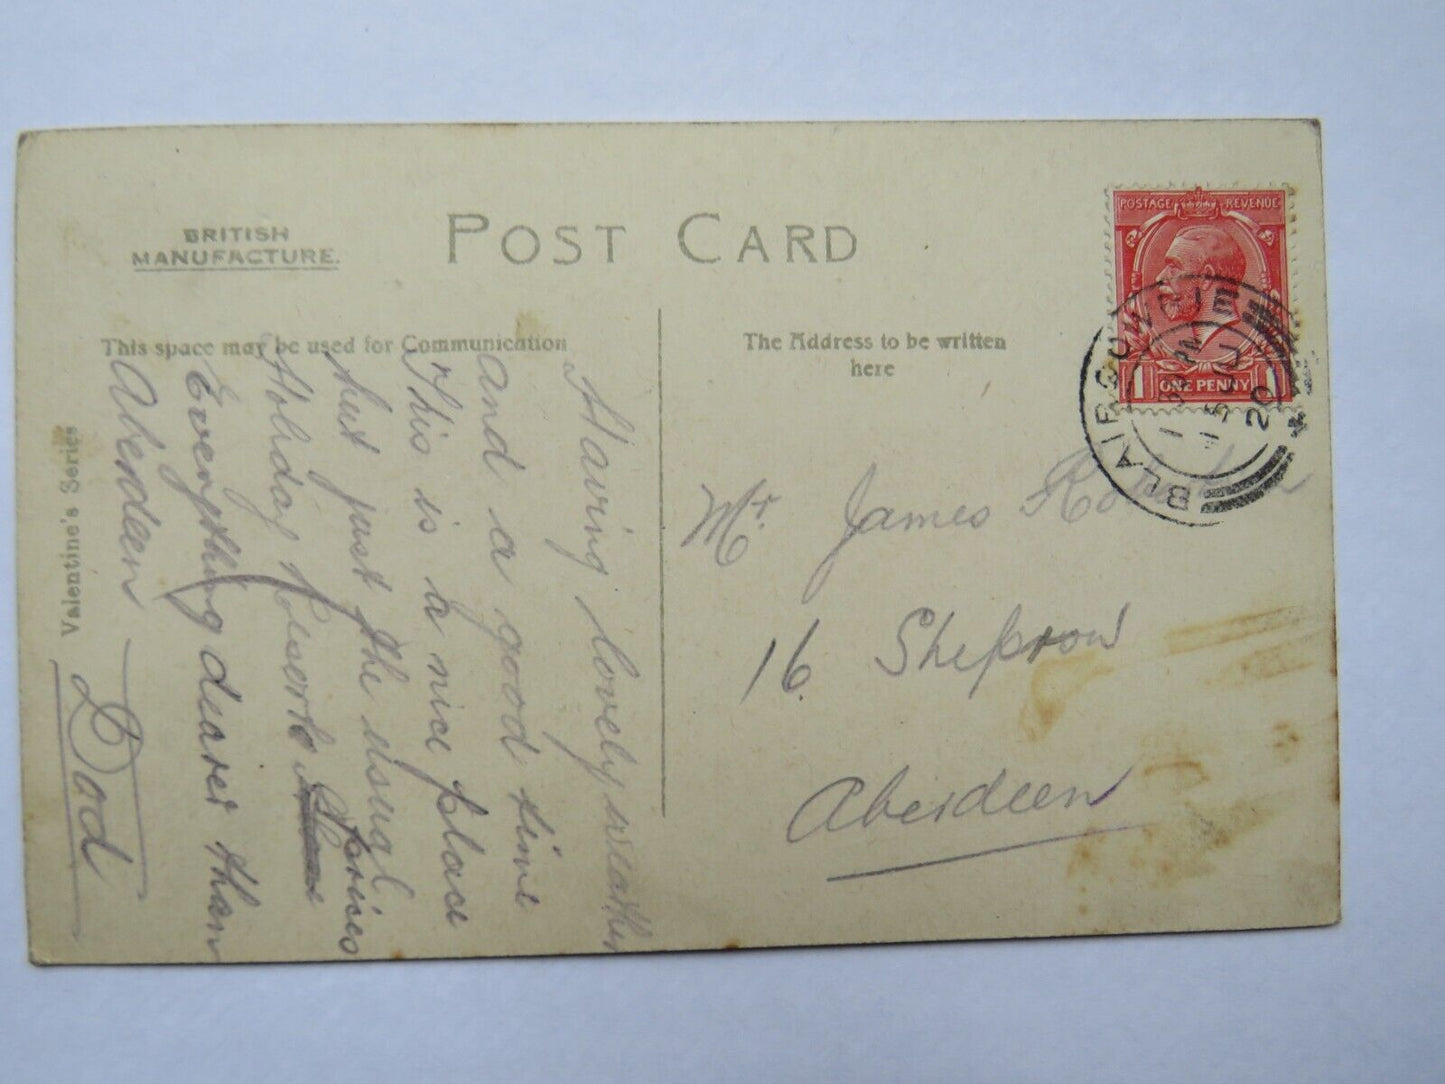 BRITISH
MANUFACTURE.
POST CARD
This space may be used for Communication
The Address to be written
here
Valentine's Series
POSTAGE REVENUE
1 ONE PENNY 1
BLAIRGOWRIE
PM
15 JU
20
Having lovely weather
and a good time
This is a nice place
but just the usual
Holiday Resort prices
Everything dearer than
Aberdeen
Dod
Mr. James
16 Sheprow
Aberdeen